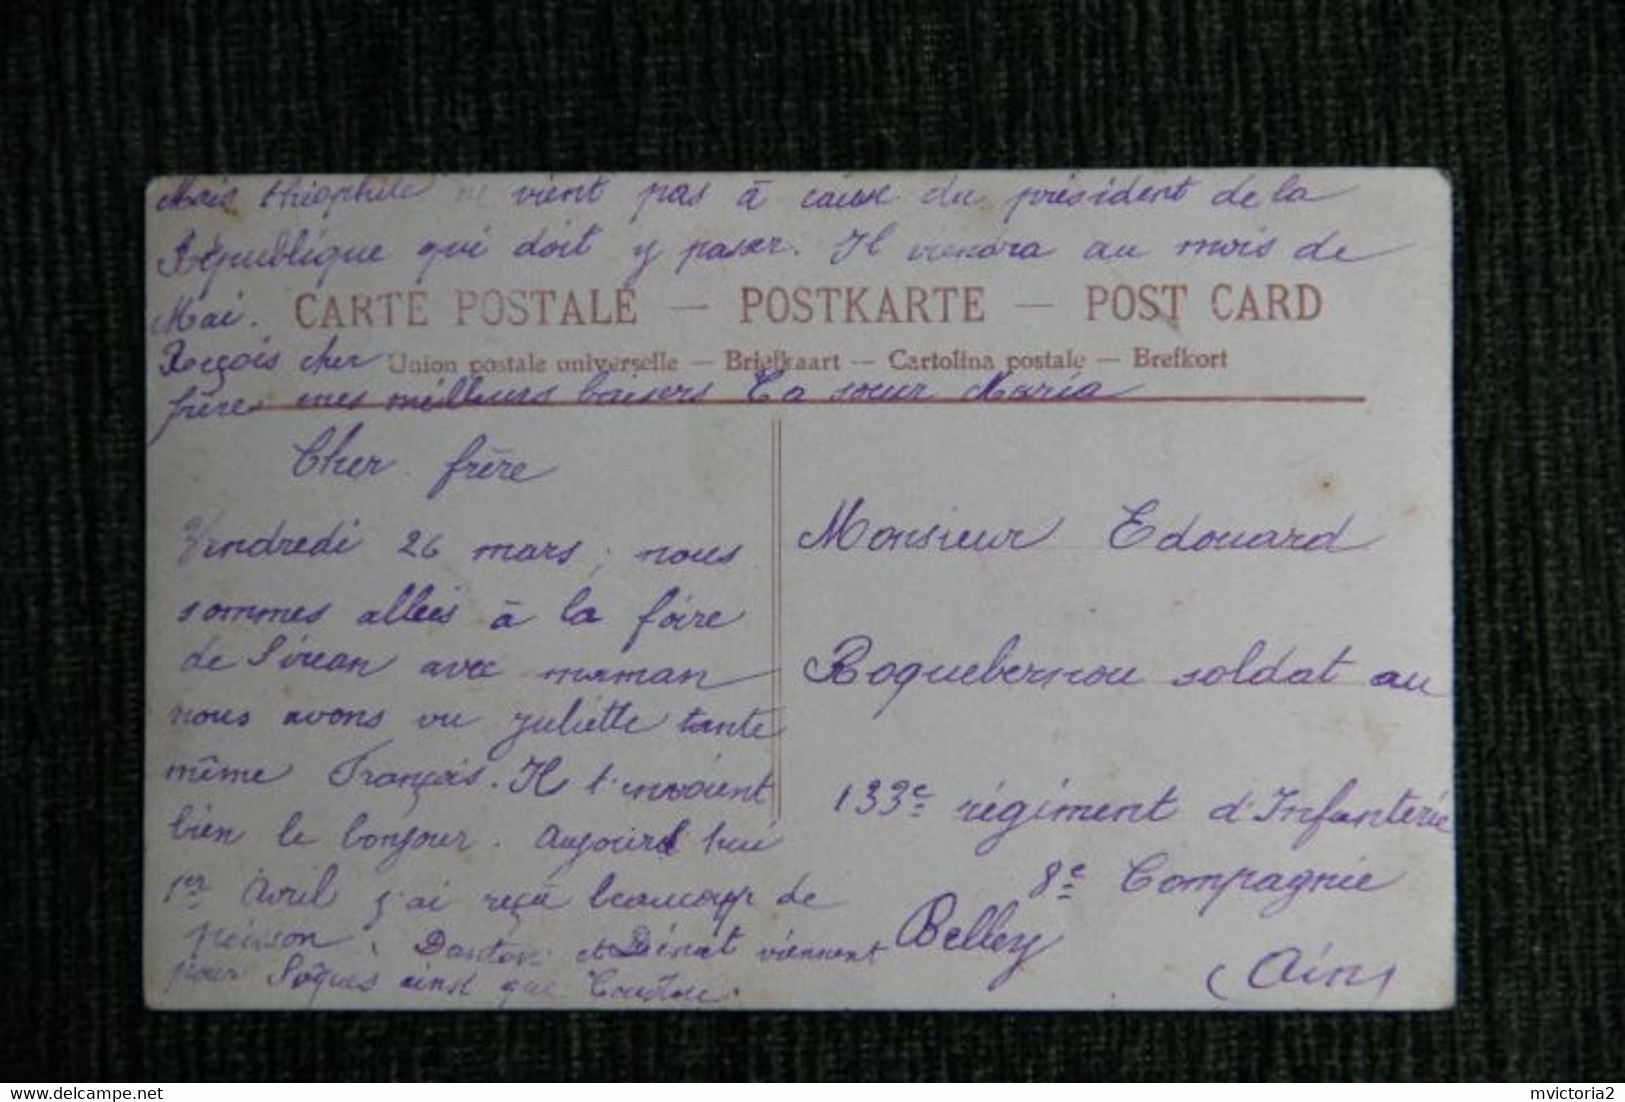 Mais théophile ne vient pas à cause du président de la
République qui doit y passer. Il viendra au mois de
Mai.
CARTE POSTALE — POSTKARTE — POST CARD
Reçois cher
Union postale universelle — Briefkaart — Cartolina postale — Brefkort
frère mes meilleurs baisers Ta sœur Maria
Cher frère
Vendredi 26 mars, nous
sommes allées à la foire
de avec maman
nous avons vu juliette tante
même François. Il t'envoient
bien le bonjour. Aujourd hui
1er Avril j'ai reçu beaucoup de
poisson. Danton et viennent
pour Pâques ainsi que
Monsieur Edouard
Roquebernou soldat au
133e régiment d'Infanterie
8e Compagnie
Belley
(Ain)
www.delcampe.net
mvictoria2